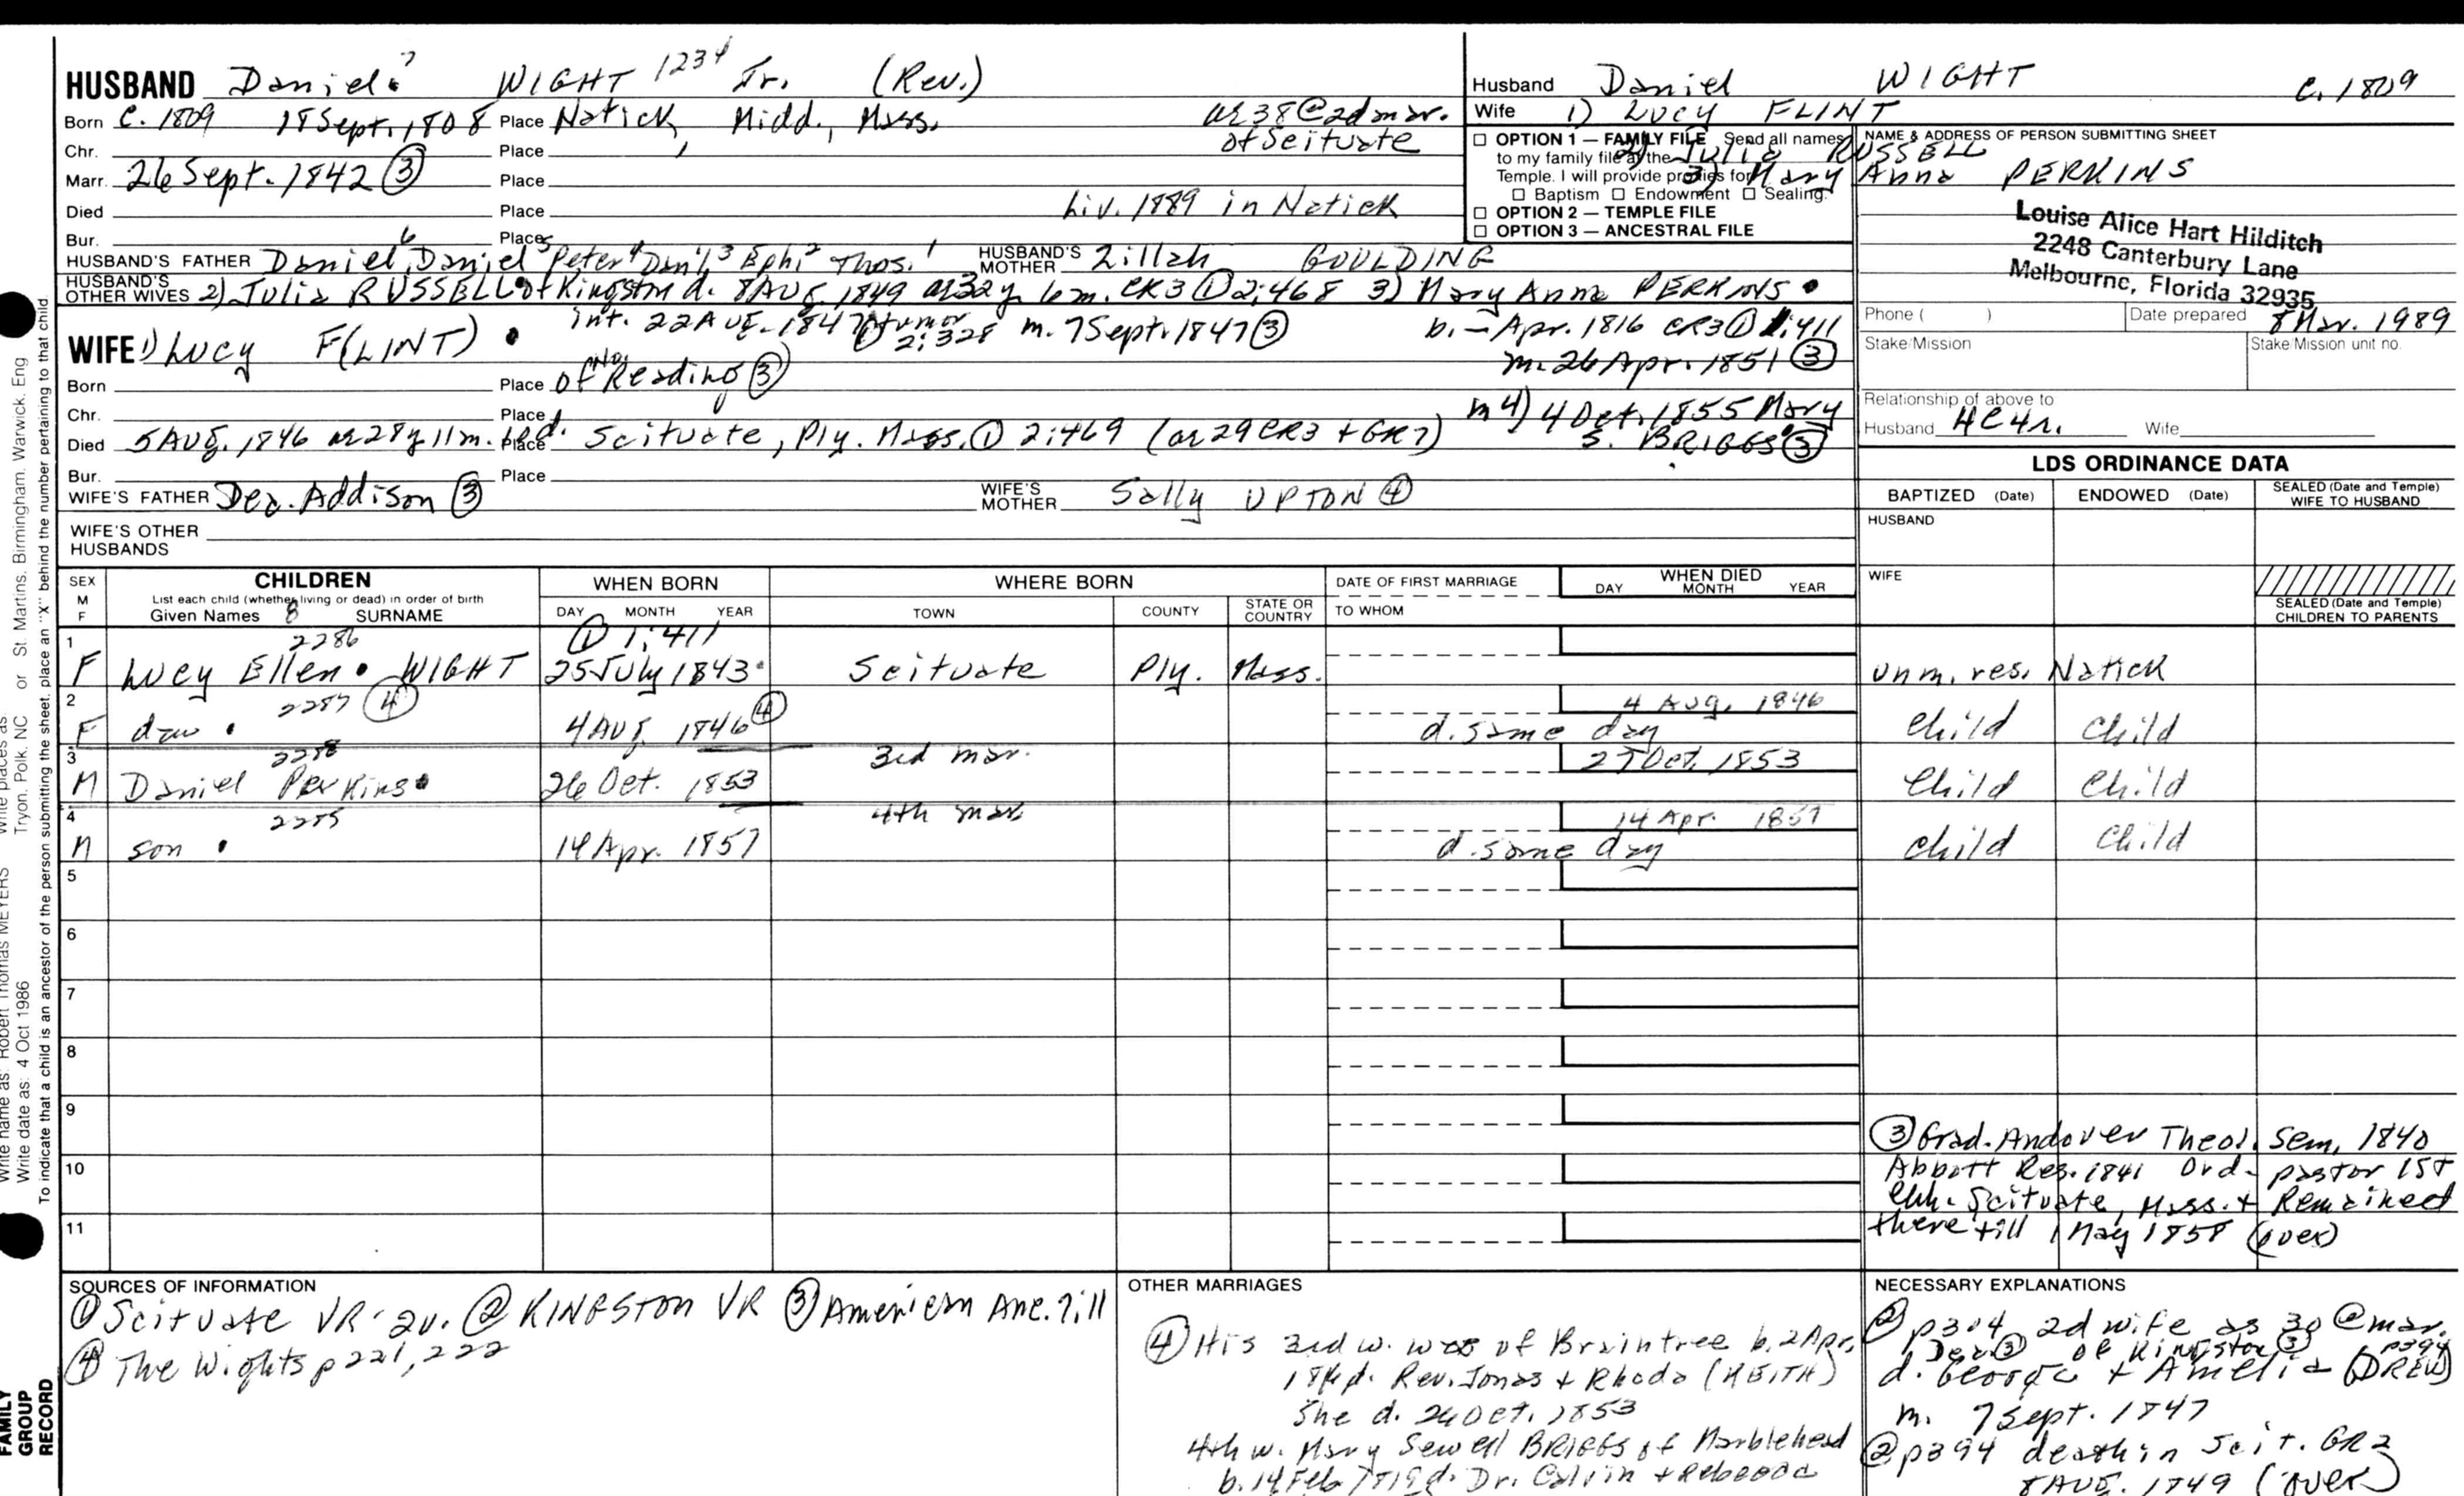 HUSBAND Daniel 7 WIGHT 1234 Jr. (Rev.)
Born C. 1809 18 Sept. 1808 Place Natick, Midd., Mass. as 38 @ 2d mar.
Chr. Place of Scituate
Marr. 26 Sept. 1842 ③ Place
Died Place Liv. 1889 in Natick
Bur. Place
HUSBAND'S FATHER Daniel 6, Daniel 5 Peter 4 Dan'l 3 Eph 2 Thos. 1 HUSBAND'S MOTHER Zillah GOULDING
HUSBAND'S OTHER WIVES 2) Julia RUSSELL of Kingston d. 8 AUG. 1849 as 32 y 6 m. CR3 ① 2:468 3) Mary Anna PERKINS
int. 22 AUG. 1847 tumor ① 2:328 m. 7 Sept. 1847 ③ b. – Apr. 1816 CR3 ① 1:411
WIFE 1) Lucy F(LINT)
m. 26 Apr. 1851 ③
Born Place of No. Reading ③
Chr. Place m 4) 4 Oct. 1855 Mary
Died 5 AUG. 1846 as 28 y 11 m. Place Scituate, Ply. Mass. ① 2:469 (as 29 CR3 + GR7) S. BRIGGS ③
Bur. Place
WIFE'S FATHER Dea. Addison ③ WIFE'S MOTHER Sally UPTON ④
WIFE'S OTHER HUSBANDS
Husband Daniel WIGHT C. 1809
Wife 1) Lucy FLINT
2) Julia RUSSELL
3) Mary Anna PERKINS
☐ OPTION 1 — FAMILY FILE Send all names
to my family file at the
Temple. I will provide proxies for
☐ Baptism ☐ Endowment ☐ Sealing.
☐ OPTION 2 — TEMPLE FILE
☐ OPTION 3 — ANCESTRAL FILE
NAME & ADDRESS OF PERSON SUBMITTING SHEET
Louise Alice Hart Hilditch
2248 Canterbury Lane
Melbourne, Florida 32935
Phone ( ) Date prepared 8 Mar. 1989
Stake/Mission Stake/Mission unit no.
Relationship of above to
Husband HC4r. Wife
LDS ORDINANCE DATA
BAPTIZED (Date) ENDOWED (Date) SEALED (Date and Temple) WIFE TO HUSBAND
HUSBAND
WIFE
SEALED (Date and Temple) CHILDREN TO PARENTS
SEX M F CHILDREN WHEN BORN WHERE BORN DATE OF FIRST MARRIAGE WHEN DIED
List each child (whether living or dead) in order of birth
Given Names 8 SURNAME DAY MONTH YEAR TOWN COUNTY STATE OR COUNTRY TO WHOM DAY MONTH YEAR
1 2286 ① 1:411
F Lucy Ellen WIGHT 25 July 1843 Scituate Ply. Mass. unm. res. Natick
2 2287 ④ 4 Aug. 1846
F dau 4 AUG. 1846 ④ d. same day child child
3 2288 3rd mar. 27 Oct. 1853
M Daniel Perkins 26 Oct. 1853 child child
4 2289 4th mar. 14 Apr. 1857
M son 14 Apr. 1857 d. same day child child
5
6
7
8
9
10
11
③ Grad. Andover Theol. Sem. 1840
Abbott Res. 1841 Ord. pastor 1st
Chh. Scituate, Mass. + Remained
there till 1 May 1858 (over)
SOURCES OF INFORMATION
① Scituate VR 2v. ② KINGSTON VR ③ American Anc.
④ The Wights p 221, 222
OTHER MARRIAGES
④ His 3rd w. was of Braintree b. 2 Apr.
d. Rev. Jonas + Rhoda (KEITH)
She d. 26 Oct. 1853
4th w. Mary Sewell BRIGGS of Marblehead
b. 14 Feb 1819 d. Dr. Calvin + Rebecca
NECESSARY EXPLANATIONS
② p304 2d wife as 30 @ mar.
Dea. ③ of Kingston ③ p394
d. George + Amelia (DREW)
m. 7 Sept. 1847
② p394 death in Scit. GR2
8 AUG. 1849 (over)
Write places as: Tryon, Polk, NC or St. Martins, Birmingham, Warwick, Eng
Write name as: Robert Thomas MEYERS
Write date as: 4 Oct 1986
To indicate that a child is an ancestor of the person submitting the sheet, place an "X" behind the number pertaining to that child
FAMILY
GROUP
RECORD